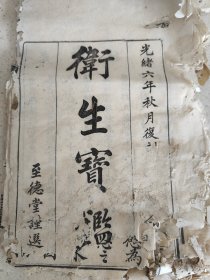 光緒六年秋月復
衛生寶鑑
至德堂謹選